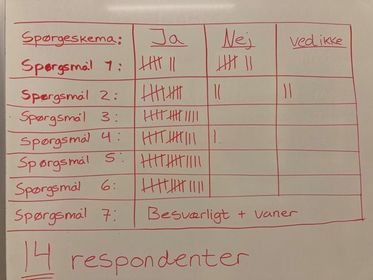 Spørgeskema: Ja Nej Ved ikke
Spørgsmål 1: 卌 || 卌 ||
Spørgsmål 2: 卌 卌 || ||
Spørgsmål 3: 卌 卌 ||||
Spørgsmål 4: 卌 卌 ||| |
Spørgsmål 5: 卌 卌 ||||
Spørgsmål 6: 卌 卌 ||||
Spørgsmål 7: Besværligt + vaner
14 respondenter